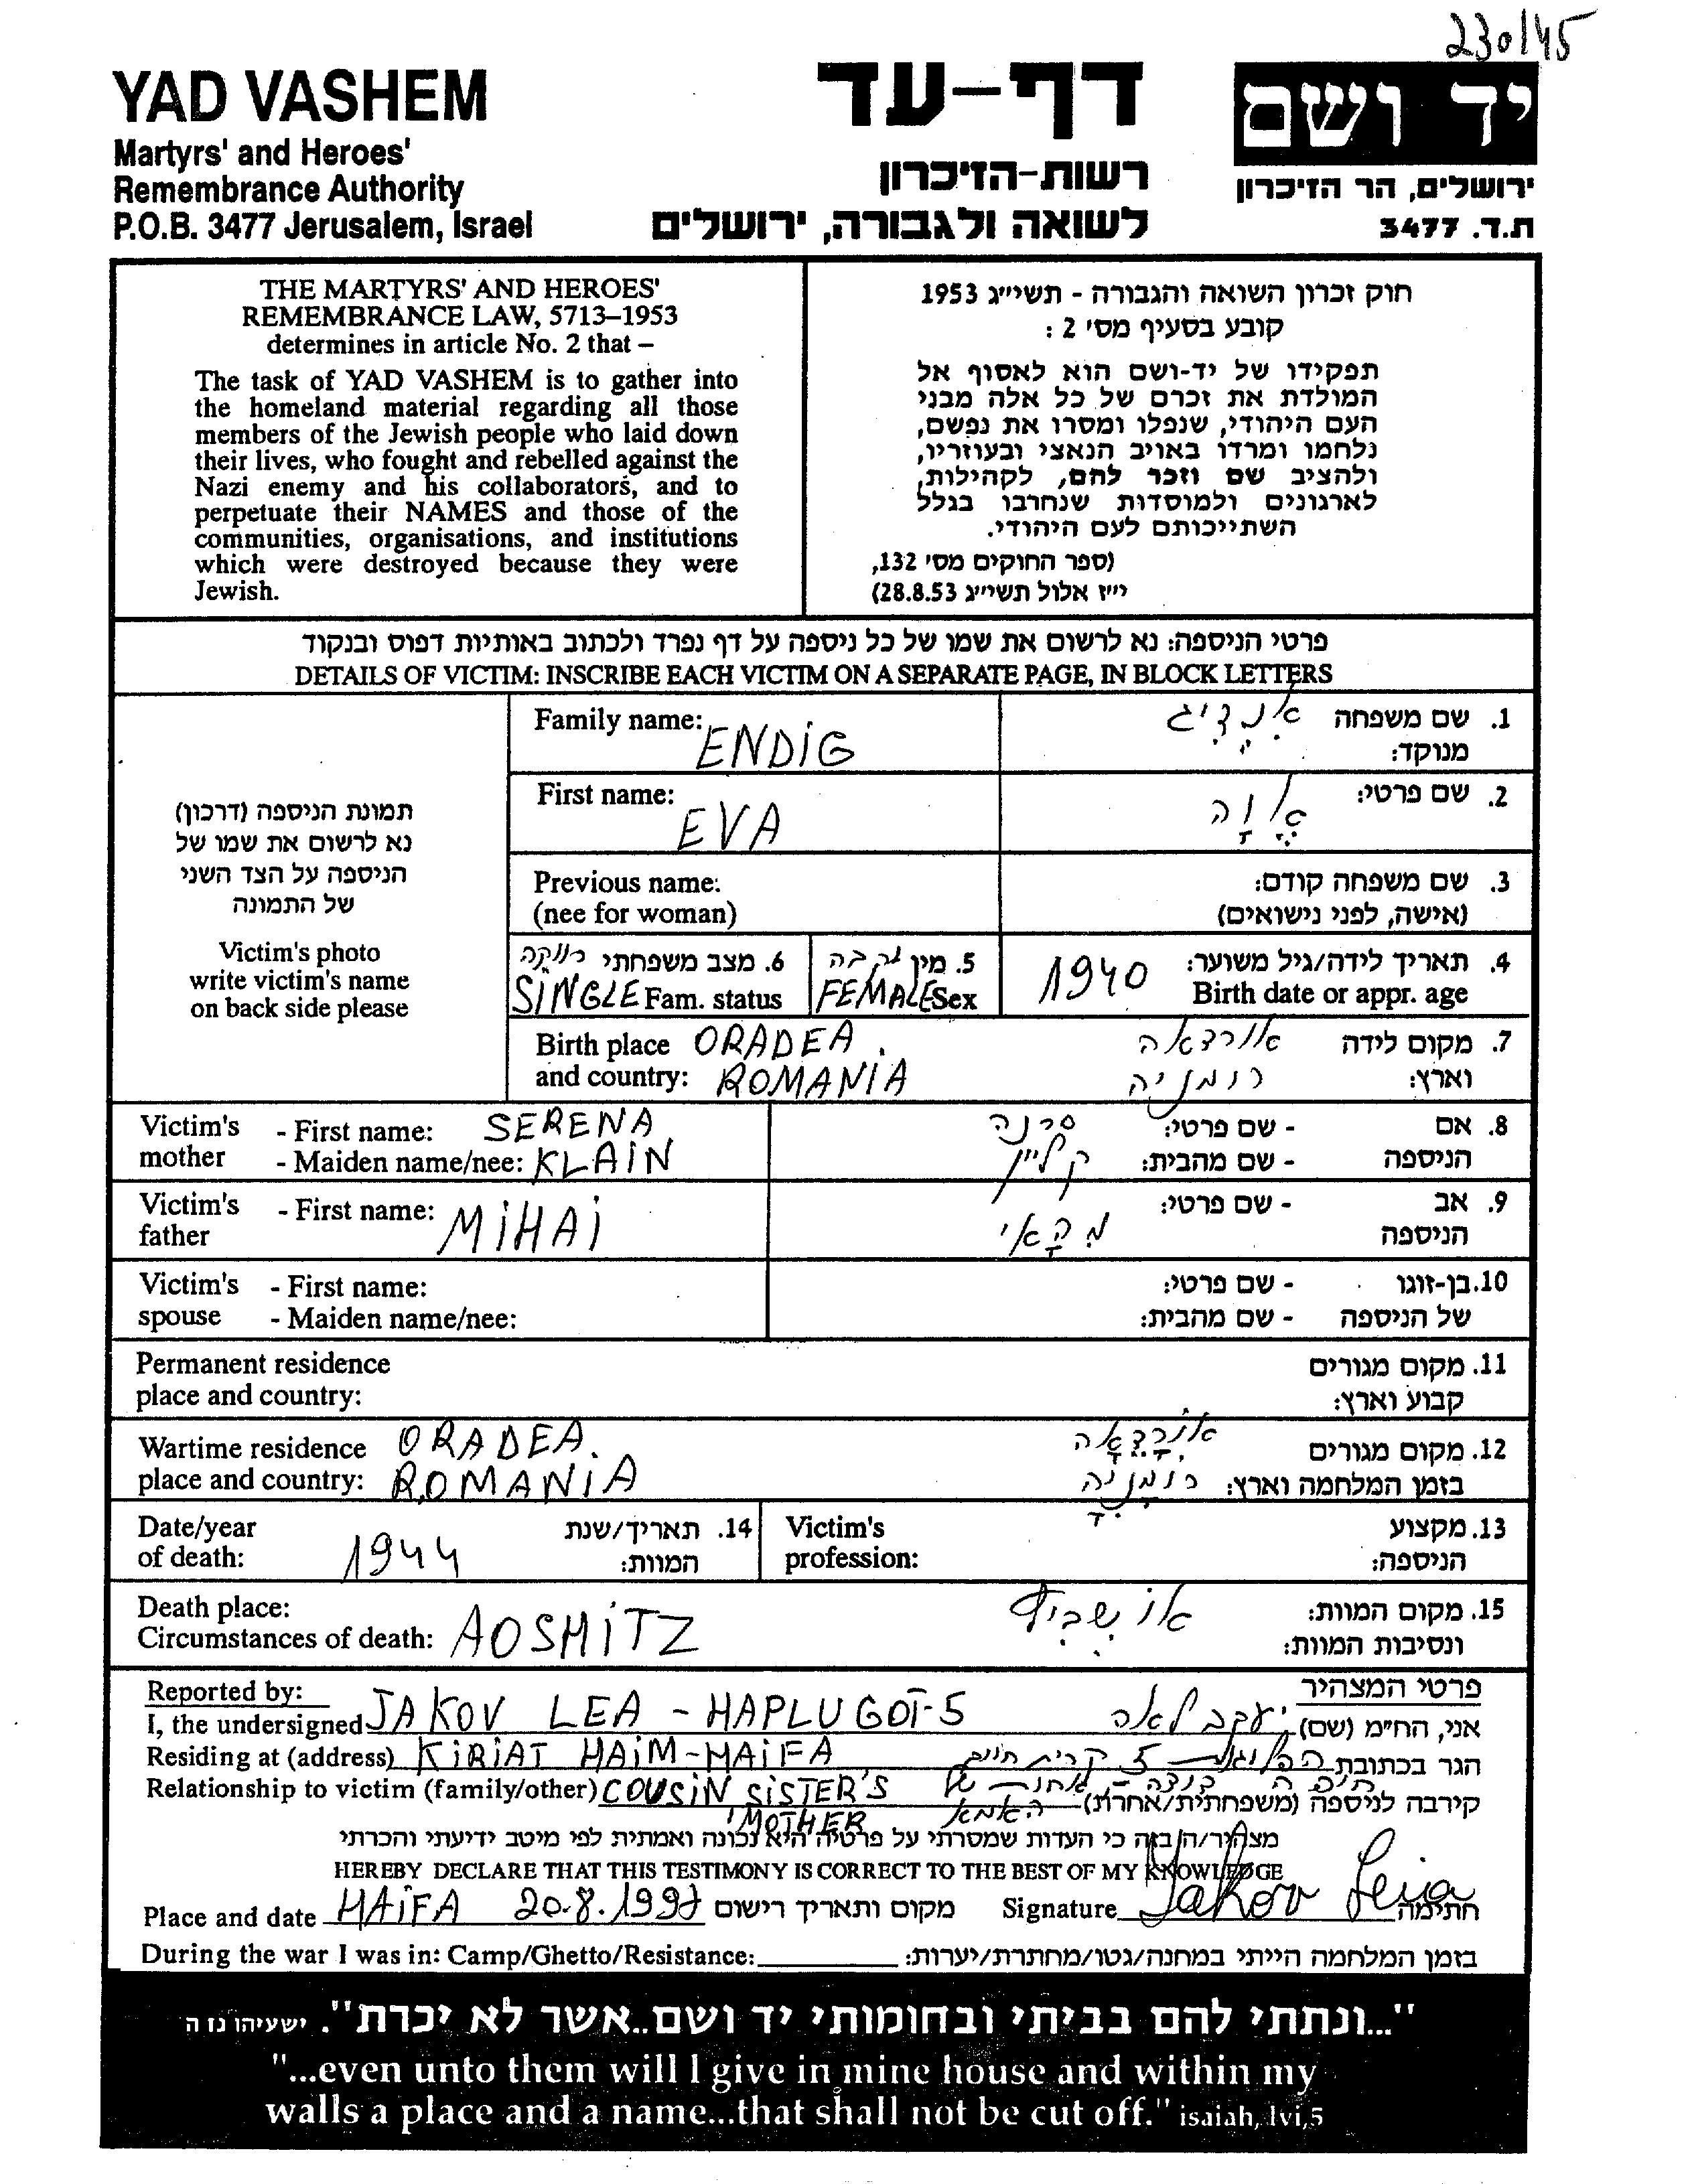 230/45
YAD VASHEM
Martyrs' and Heroes'
Remembrance Authority
P.O.B. 3477 Jerusalem, Israel
דף-עד
רשות-הזיכרון
לשואה ולגבורה, ירושלים
יד ושם
ירושלים, הר הזיכרון
ת.ד. 3477
THE MARTYRS' AND HEROES'
REMEMBRANCE LAW, 5713–1953
determines in article No. 2 that –
The task of YAD VASHEM is to gather into
the homeland material regarding all those
members of the Jewish people who laid down
their lives, who fought and rebelled against the
Nazi enemy and his collaborators, and to
perpetuate their NAMES and those of the
communities, organisations, and institutions
which were destroyed because they were
Jewish.
חוק זכרון השואה והגבורה - תשי״ג 1953
קובע בסעיף מס׳ 2 :
תפקידו של יד-ושם הוא לאסוף אל
המולדת את זכרם של כל אלה מבני
העם היהודי, שנפלו ומסרו את נפשם,
נלחמו ומרדו באויב הנאצי ובעוזריו,
ולהציב שם וזכר להם, לקהילות,
לארגונים ולמוסדות שנחרבו בגלל
השתייכותם לעם היהודי.
(ספר החוקים מס׳ 132,
י״ז אלול תשי״ג 28.8.53)
פרטי הניספה: נא לרשום את שמו של כל ניספה על דף נפרד ולכתוב באותיות דפוס ובנקוד
DETAILS OF VICTIM: INSCRIBE EACH VICTIM ON A SEPARATE PAGE, IN BLOCK LETTERS
תמונת הניספה (דרכון)
נא לרשום את שמו של
הניספה על הצד השני
של התמונה
Victim's photo
write victim's name
on back side please
Family name: ENDIG
1. שם משפחה אנדיג
מנוקד:
First name: EVA
2. שם פרטי: אוה
Previous name:
(nee for woman)
3. שם משפחה קודם:
(אישה, לפני נישואים)
6. מצב משפחתי רווקה
SINGLE Fam. status
5. מין נקבה
FEMALE Sex
4. תאריך לידה/גיל משוער:
1940 Birth date or appr. age
Birth place ORADEA
and country: ROMANIA
7. מקום לידה אורדאה
וארץ: רומניה
Victim's - First name: SERENA
mother - Maiden name/nee: KLAIN
8. אם - שם פרטי: סרנה
הניספה - שם מהבית: קליין
Victim's - First name: MIHAI
father
9. אב - שם פרטי: מהאי
הניספה
Victim's - First name:
spouse - Maiden name/nee:
10. בן-זוגו - שם פרטי:
של הניספה - שם מהבית:
Permanent residence
place and country:
11. מקום מגורים
קבוע וארץ:
Wartime residence ORADEA.
place and country: ROMANIA
12. מקום מגורים אורדאה
בזמן המלחמה וארץ: רומניה
Date/year
of death: 1944
14. תאריך/שנת
המוות:
Victim's
profession:
13. מקצוע
הניספה:
Death place:
Circumstances of death: AOSHITZ
15. מקום המוות: אושביץ
ונסיבות המוות:
Reported by:
פרטי המצהיר
I, the undersigned JAKOV LEA - HAPLUGOT-5
אני, הח״מ (שם) יעקב לאה
Residing at (address) KIRIAT HAIM-HAIFA
הגר בכתובת הפלוגות 5 קרית חיים
חיפה
Relationship to victim (family/other) COUSIN SISTER'S
MOTHER
קירבה לניספה (משפחתית/אחרת) בת דודה - אחות של
האמא
מצהיר/ה בזה כי העדות שמסרתי על פרטיה היא נכונה ואמתית לפי מיטב ידיעתי והכרתי
HEREBY DECLARE THAT THIS TESTIMONY IS CORRECT TO THE BEST OF MY KNOWLEDGE
Place and date HAIFA 20.8.1997 מקום ותאריך רישום Signature Jakov Leia חתימה
During the war I was in: Camp/Ghetto/Resistance: בזמן המלחמה הייתי במחנה/גטו/מחתרת/יערות:
"...ונתתי להם בביתי ובחומותי יד ושם..אשר לא יכרת". ישעיהו נז ה
"...even unto them will I give in mine house and within my
walls a place and a name...that shall not be cut off." isaiah, lvi,5